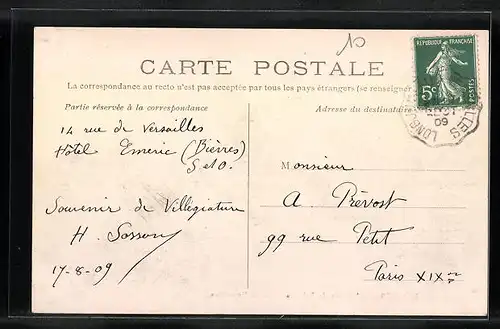 10
CARTE POSTALE
La correspondance au recto n'est pas acceptée par tous les pays étrangers (se renseigner
Partie réservée à la correspondance
Adresse du destinataire
REPUBLIQUE FRANÇAISE
5c
POSTES
14 rue de Versailles
Hôtel Emeric (Bièvres)
S et O.
Souvenir de Villégiature
H.
17-8-09
Monsieur
A Prévost
99 rue Petit
Paris XIXme